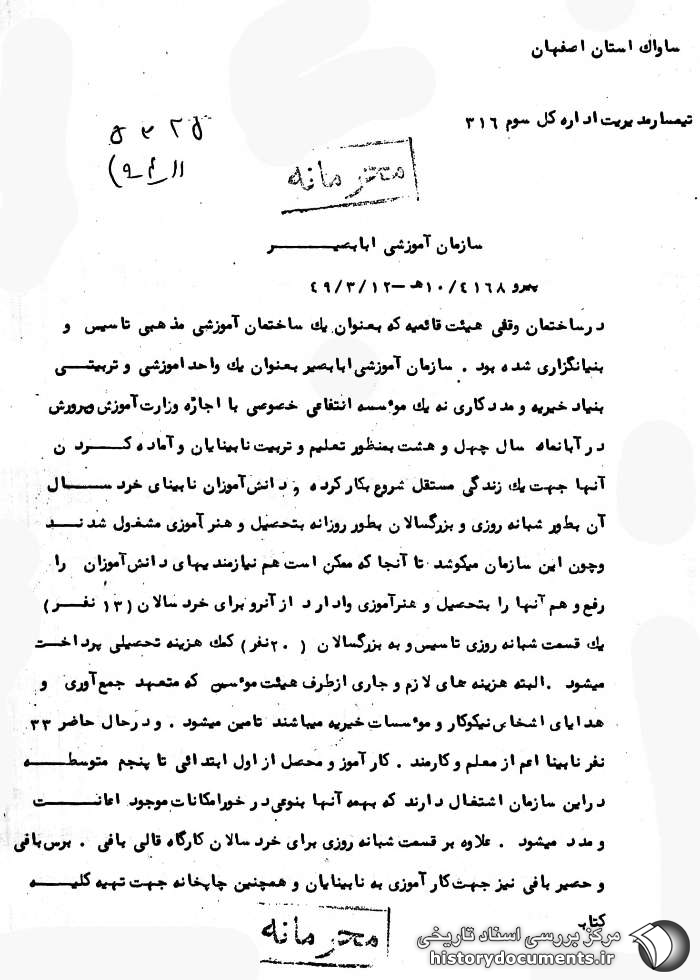 ساواك استان اصفهان
تیمسار مدیریت اداره كل سوم ۳۱۶
محرمانه
سازمان آموزشی ابابصیر
پیرو ۱۰/۴۱۶۸هـ -۴۹/۳/۱۲
در ساختمان وقفی هیئت قائمیه كه بعنوان یك ساختمان آموزشی مذهبی تاسیس و
بنیانگزاری شده بود . سازمان آموزشی ابابصیر بعنوان یك واحد اموزشی و تربیتی
بنیاد خیریه و مددكاری نه یك مؤسسه انتفاعی خصوصی با اجازه وزارت آموزش وپرورش
در آبانماه سال چهل و هشت بمنظور تعلیم و تربیت نابینایان و آماده كردن
آنها جهت یك زندگی مستقل شروع بكار كرده و دانش‌آموزان نابینای خردسال
آن بطور شبانه روزی و بزرگسالان بطور روزانه بتحصیل و هنرآموزی مشغول شدند
وچون این سازمان میكوشد تا آنجا كه ممكن است هم نیازمندیهای دانش‌آموزان را
رفع و هم آنها را بتحصیل و هنرآموزی وادارد از آنرو برای خردسالان (۱۳ نفر)
یك قسمت شبانه روزی تاسیس و به بزرگسالان (۲۰نفر) كمك هزینه تحصیلی پرداخت
میشود .البته هزینه های لازم و جاری ازطرف هیئت موسسین كه متعهد جمع‌آوری و
هدایای اشخاص نیكوكار و مؤسسات خیریه میباشند تامین میشود . و درحال حاضر ۳۳
نفر نابینا اعم از معلم و كارمند . كارآموز و محصل از اول ابتدائی تا پنجم متوسطه
دراین سازمان اشتغال دارند كه بهمه آنها بنوعی در خور امكانات موجود اعانت
و مدد میشود . علاوه بر قسمت شبانه روزی برای خردسالان كارگاه قالی بافی . برس‌بافی
و حصیر بافی نیز جهت كارآموزی به نابینایان و همچنین چاپخانه جهت تهیه كلیه
كتاب
محرمانه
مرکز بررسی اسناد تاریخی
historydocuments.ir